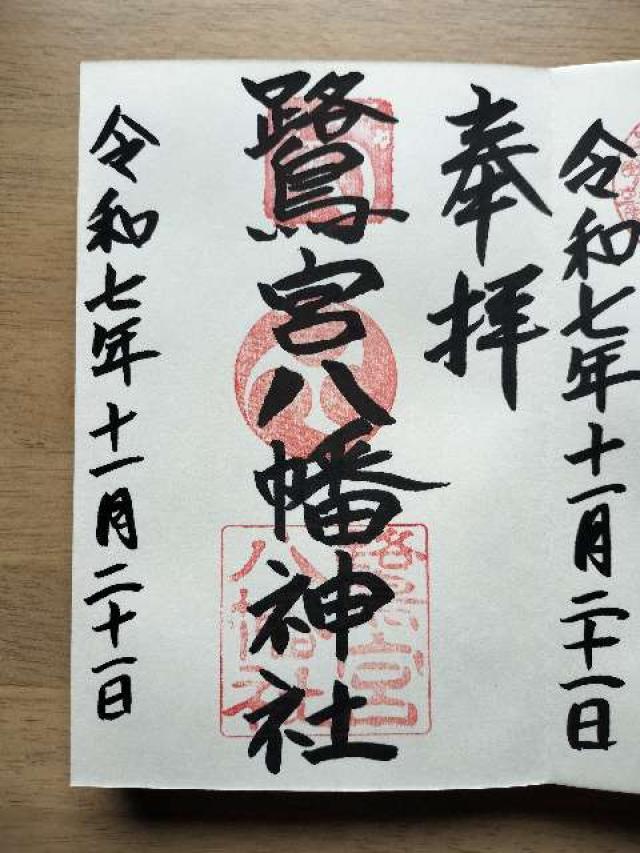 令和七年十一月二十一日
奉拝
鷺宮八幡神社
鷺宮
八幡社
令和七年十一月二十一日